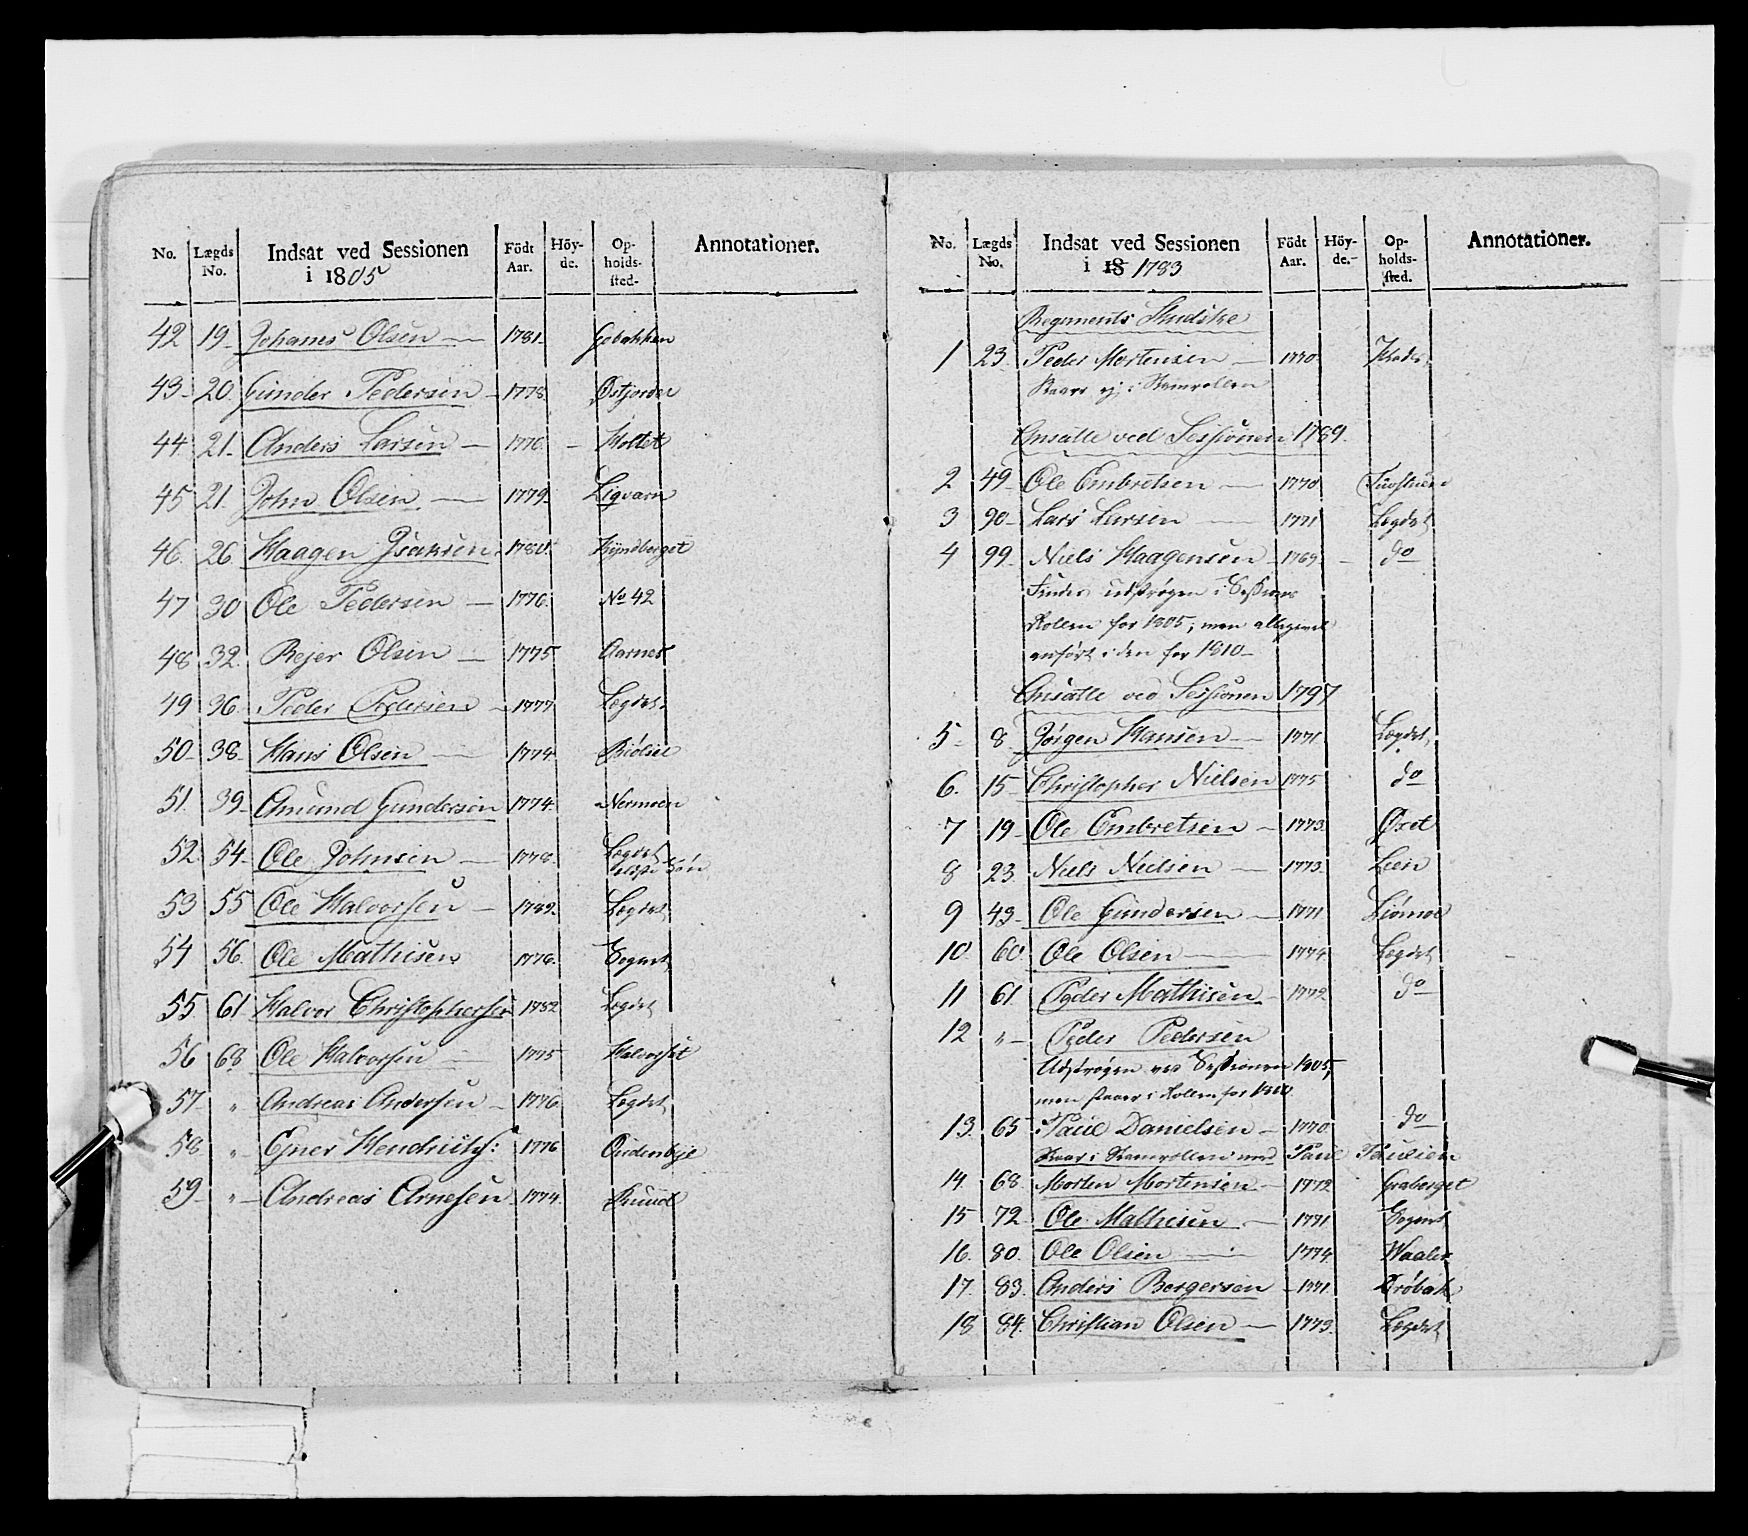 No. Lægds No. Indsat ved Sessionen i 1805 Födt Aar. Höy-de. Op-holds-sted. Annotationer.
42 19 Johanes Olsen 1781 Gobakken
43 20 Gunder Pedersen 1778 Østjorder
44 21 Anders Larsen 1776 Holtet
45 21 John Olsen 1779 Ligvarn
46 26 Haagen Isaksen Kyndberget
47 30 Ole Pedersen 1776 No 42
48 32 Rejer Olsen 1775 Aarnes
49 36 Peder Pedersen 1777 Lægdet
50 38 Hans Olsen 1774 Riólset
51 39 Amund Gundersen 1774 Nermoen
52 54 Ole Johnsen 1778 Lægdet
53 55 Ole Halvorsen 1782 Lægdet
54 56 Ole Mathisen 1776 Sognet
55 61 Halvor Christophersen 1782 Lægdet
56 68 Ole Halvorsen 1775 Halvorset
57 " Andreas Andersen 1776 Lægdet
58 " Ejner Hendrichs: 1776 Oudenbye
59 " Andreas Arnesen 1774
No. Lægds No. Indsat ved Sessionen i 18 1783 Födt Aar. Höy-de. Op-holds-sted. Annotationer.
Regiments
1 23 Peder Mortensen 1770
Staar ej i Stamrollen
Ansatte ved Sessionen 1789.
2 49 Ole Embretsen 1770
3 90 Lars Larsen 1771 Lægdet
4 99 Niels Haagensen 1769 do
Findes udstrøgen i Sessions
Rollen for 1805, men alligevel
anført i den for 1810
Ansatte ved Sessionen 1797
5 8 Jørgen Hansen 1771 Lægdet
6. 15 Christopher Nielsen 1775 do
7 19 Ole Embretsen 1773 Øset
8 23 Niels Nielsen 1773 Lien
9 43 Ole Gundersen 1771 Liømoe
10 60 Ole Olsen 1774 Lægdet
11 61 Peder Mathisen 1772 do
12 " Peder Pedersen
Udstrøgen ved Sessionen 1805,
men staaer i Rollen for 1810
13. 65 Paul Danielsen 1770 do
Staar i Stamrollen med Paul Paulsen
14. 68 Morten Mortensen 1772 Graberget
15 72 Ole Mathisen 1771 Sognet
16. 80. Ole Olsen 1774 Waaler
17. 83. Anders Borgersen 1771 Drøbak
18 84. Christian Olsen 1773 Lægdet